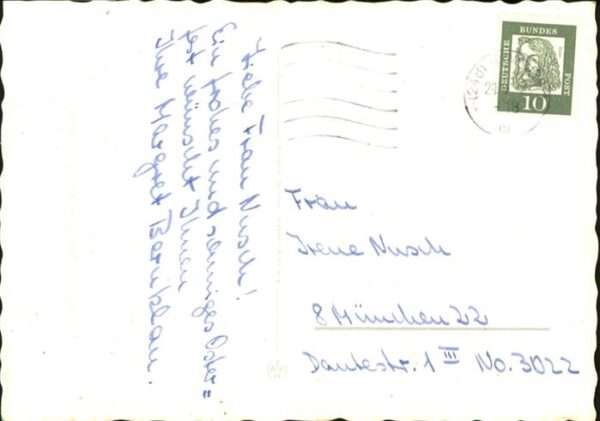 Liebe Frau Nusch!
Ein frohes und sonniges Oster=
fest wünscht Ihnen
Ihre Margret Bernklau.
DEUTSCHE BUNDES POST
10
Frau
Irene Nusch
8 München 22
Dantestr. 1 III No. 3022